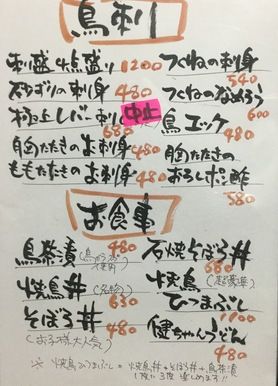 鳥刺し
刺盛り4点盛り 1200
砂ずりの刺身 480
極上レバー刺し 中止 680
胸たたきのよ刺身 480
ももたたきのよ刺身 480
つくねの刺身 540
つくねのなめろう 600
鳥ユッケ 480
胸たたきの
おろしポン酢 580
お食事
鳥茶漬 480
焼鳥丼 (名物) 630
そぼろ丼 480
(お子様大人気)
石焼そぼろ丼 680
焼鳥
ひつまぶし 1100
健ちゃんうどん 480
※焼鳥ひつまぶし=焼鳥丼+そぼろ丼+鳥茶漬
1度に3度楽しめます!!